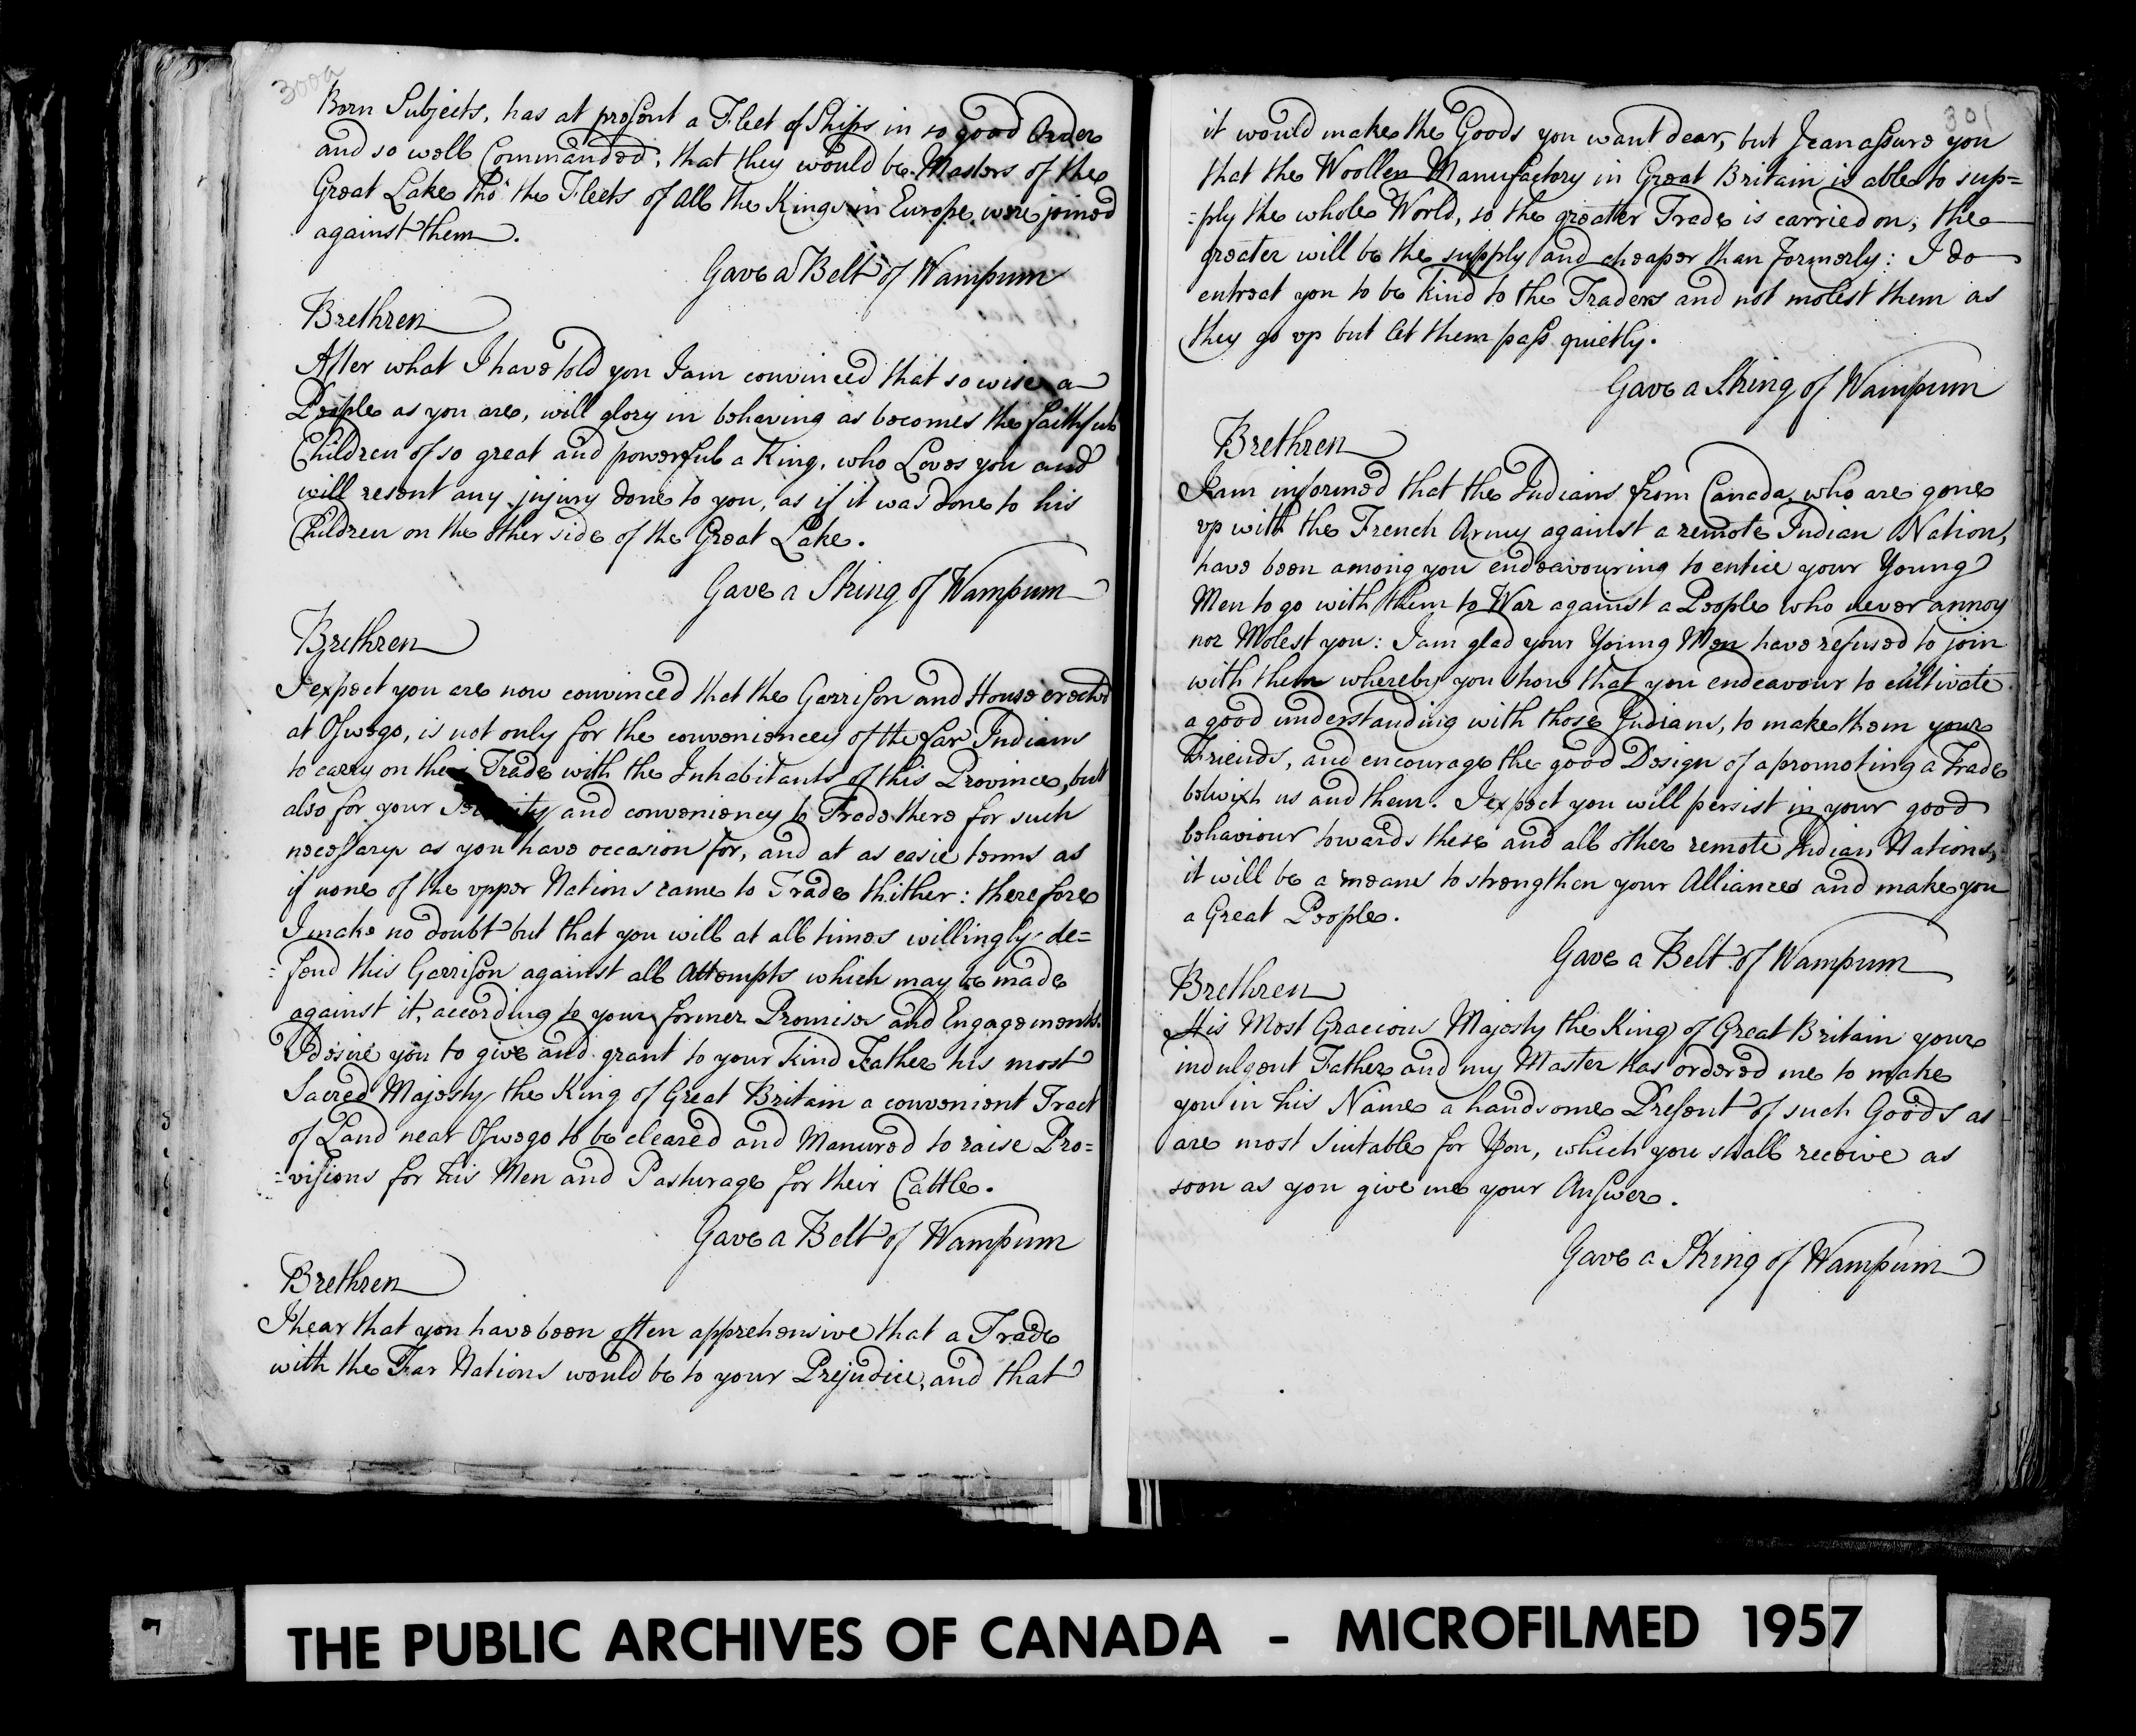 300a
Born Subjects, has at present a Fleet of Ships in so good Order
and so well Commanded, that they would be Masters of the
Great Lake tho' the Fleets of all the Kings in Europe were joined
against them.
Gave a Belt of Wampum
Brethren
After what I have told you I am convinced that so wise a
People as you are, will glory in behaving as becomes the faithful
Children of so great and powerful a King, who Loves you and
will resent any injury done to you, as if it was done to his
Children on the other side of the Great Lake.
Gave a String of Wampum
Brethren
I expect you are now convinced that the Garrison and House erected
at Oswego, is not only for the conveniencey of the far Indians
to carry on their Trade with the Inhabitants of this Province, but
also for your and conveniency to Trade there for such
necessarys as you have occasion for, and at as easie terms as
if none of the upper Nations came to Trade thither: therefore
I make no doubt but that you will at all times willingly de=
=fend this Garrison against all Attempts which may be made
against it, according to your former Promises and Engagements.
I desire you to give and grant to your kind Father his most
Sacred Majesty the King of Great Britain a convenient Tract
of Land near Oswego to be cleared and Manured to raise Pro=
=visions for his Men and Pasturage for their Cattle.
Gave a Belt of Wampum
Brethren
I hear that you have been often apprehensive that a Trade
with the Far Nations would be to your Prejudice, and that
301
it would make the Goods you want dear, but I can assure you
that the Woollen Manufactory in Great Britain is able to sup=
=ply the whole World, so the greater Trade is carried on, the
greater will be the supply and cheaper than formerly: I do
entreat you to be kind to the Traders and not molest them as
they go up but let them pass quietly.
Gave a String of Wampum
Brethren
I am informed that the Indians from Canada who are gone
up with the French Army against a remote Indian Nation,
have been among you endeavouring to entice your Young
Men to go with them to War against a People who never annoy
nor Molest you: I am glad your Young Men have refused to join
with them whereby you show that you endeavour to cultivate
a good understanding with those Indians, to make them your
Friends, and encourage the good Design of a promoting a Trade
betwixt us and them. I expect you will persist in your good
behaviour towards these and all other remote Indian Nations,
it will be a means to strengthen your Alliances and make you
a Great People.
Gave a Belt of Wampum
Brethren
His Most Gracious Majesty the King of Great Britain your
indulgent Father and my Master has ordered me to make
you in his Name a handsome Present of such Goods as
are most Suitable for You, which you shall receive as
soon as you give me your Answer.
Gave a String of Wampum
THE PUBLIC ARCHIVES OF CANADA - MICROFILMED 1957